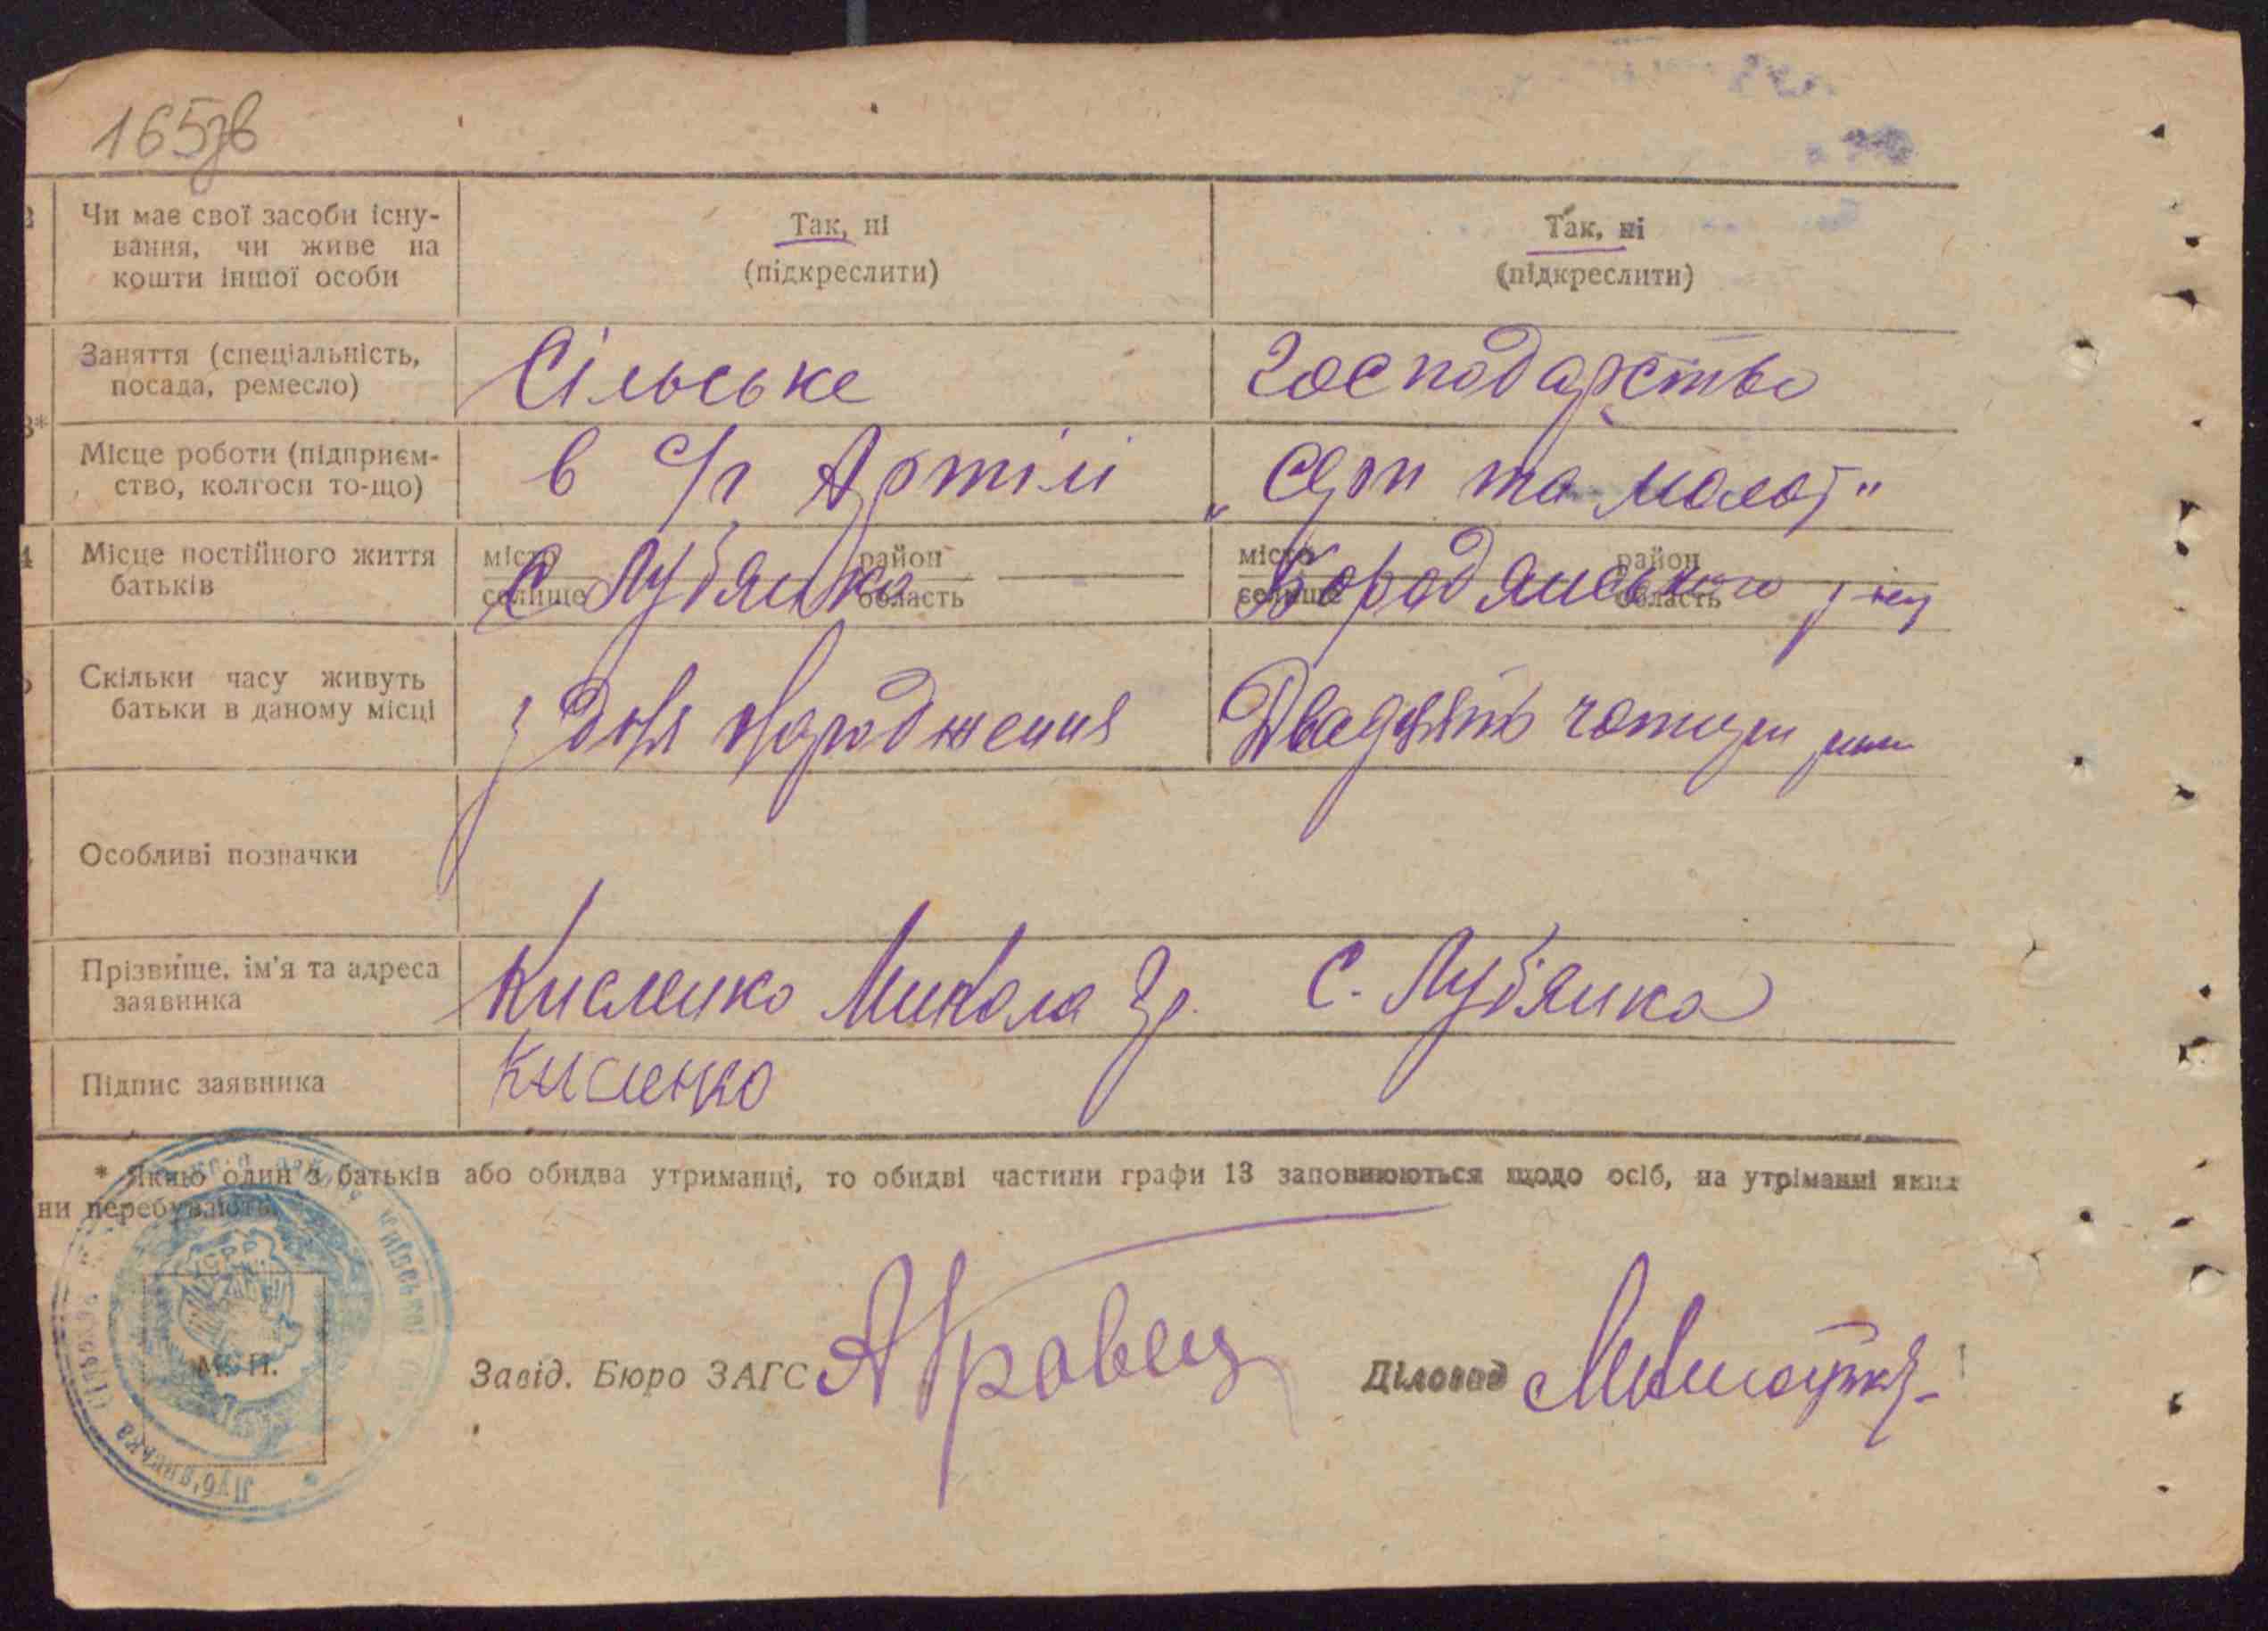 165зв
Чи має свої засоби існу-
вання, чи живе на
кошти іншої особи
Так, ні
(підкреслити)
Так, ні
(підкреслити)
Заняття (спеціальність,
посада, ремесло)
Сільське
Господарство
3*
Місце роботи (підприєм-
ство, колгосп то-що)
в с/г Артілі
„Серп та молот"
Місце постійного життя
батьків
місто
селище
район
область
С. Лубянка
місто
селище
район
область
Бородянського р-ну
Скільки часу живуть
батьки в даному місці
з дня народження
Двадцять чотири роки
Особливі позначки
Прізвище, ім'я та адреса
заявника
Кисленко Микола Гр. С. Лубянка
Підпис заявника
Кисленко
* Якщо один з батьків або обидва утриманці, то обидві частини графи 13 заповнюються щодо осіб, на утріманні яких
ни перебувають.
УСРР
Луб'янська
М. П.
Завід. Бюро ЗАГС АКравец
Діловод